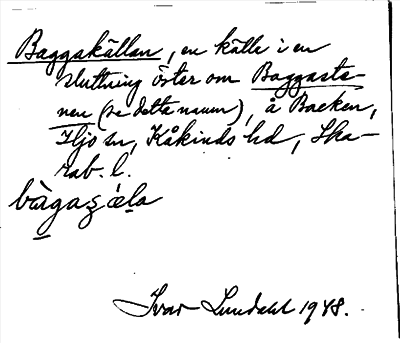 Baggakällan, en källa i en
sluttning öster om Baggaste-
nen (se detta namn), å Backen,
Hjo sn, Kåkinds hd, Ska-
rab. l.
Ivar Lundahl 1948.